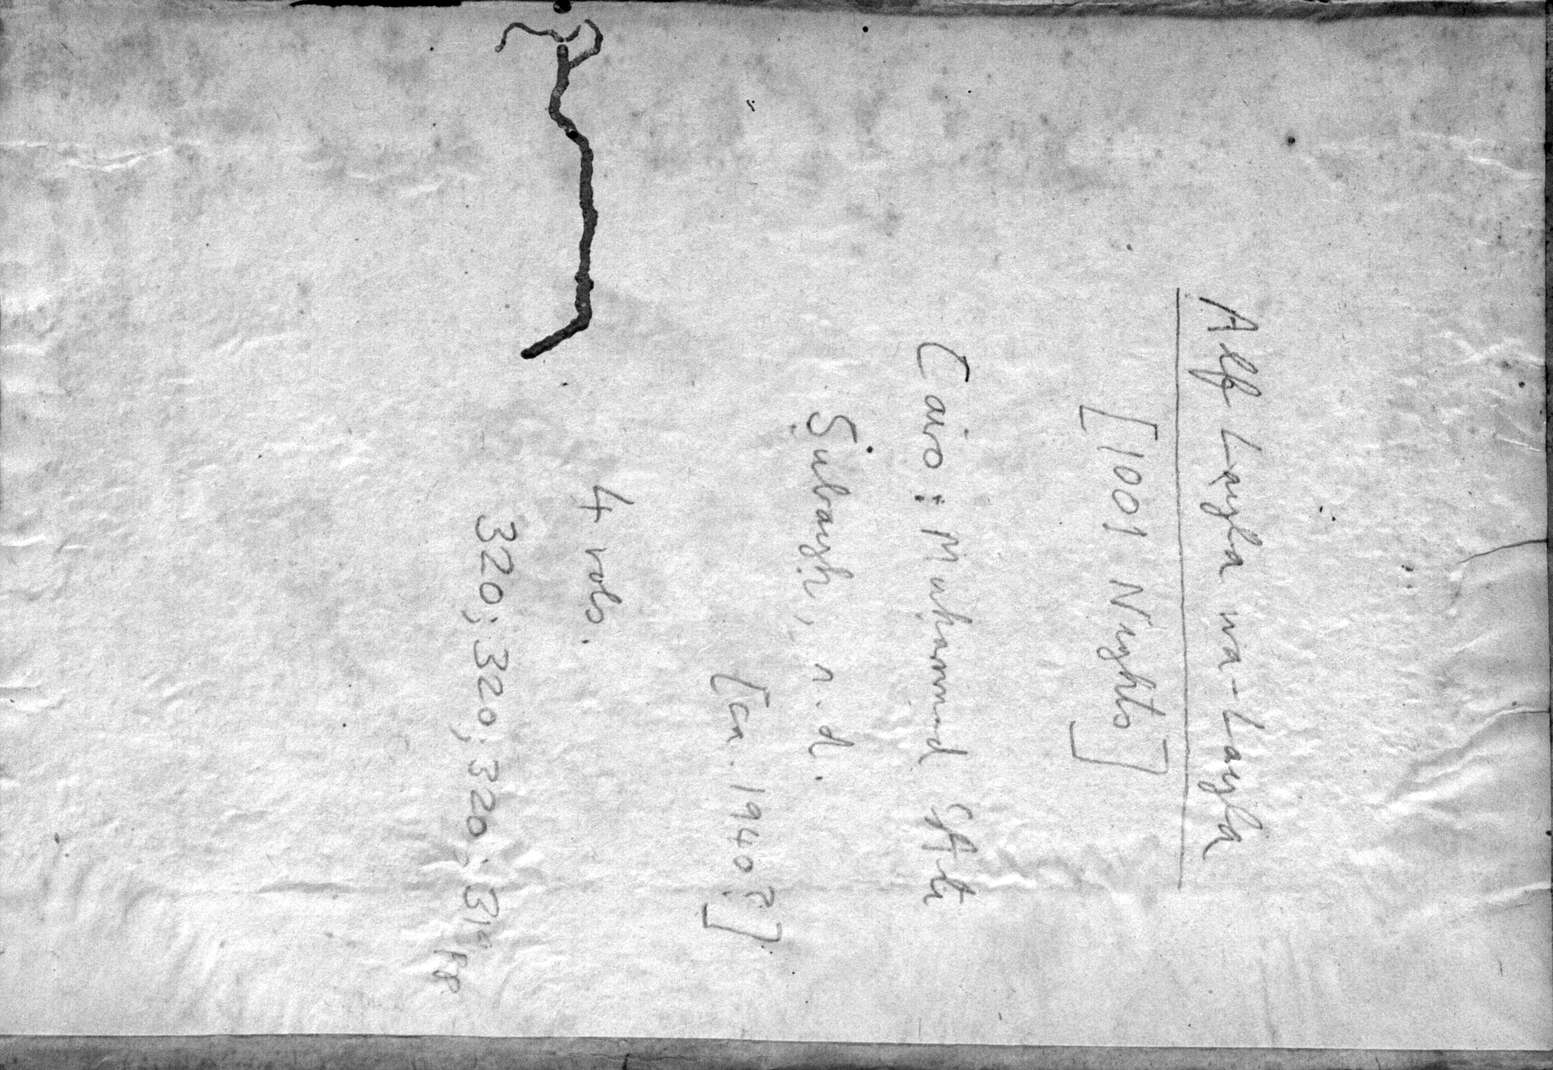 Alf Layla wa-Layla
[1001 Nights]
Cairo : Muhammad
Subaygh, n.d.
[ca. 1940?]
4 vols.
320; 320; 320;